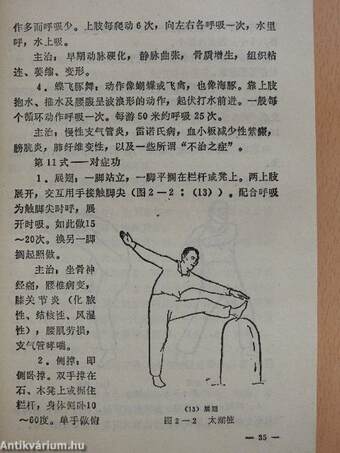 作多而呼吸少。上肢每爬动6次，向左右各呼吸一次，水里
呼，水上吸。
主治：早期动脉硬化，静脉曲张，骨质增生，组织粘
连、萎缩、变形。
4．蝶飞豚舞，动作像蝴蝶或飞禽，也像海豚。靠上肢
抱水、推水及腰腹呈波浪形的动作，起伏打水前进。一般每
个循环动作呼吸一次。每游50米约呼吸25次。
主治：慢性支气管炎，雷诺氏病，血小板减少性紫癜，
膀胱炎，肺纤维变性，以及一些所谓“不治之症”。
第11式——对症功
1．展翅：一脚站立，一脚平搁在栏杆或凳上。两上肢
展开，交互用手接触脚尖（图2—2：（13））。配合呼吸
为触脚尖时呼，展
开时吸。如此做15
～20次。换另一脚
搁起照做。
主治：坐骨神
经痛，腰椎病变，
膝关节炎（化脓
性、结核性、风湿
性），腰肌劳损，
支气管哮喘。
2．侧撑：即
侧卧撑。双手撑在
石、木凳上或握住
栏杆，身体侧卧10
～60度。单手做俯
（13）展翅
图2—2 太湖桩
— 35 —
antikvarium.hu